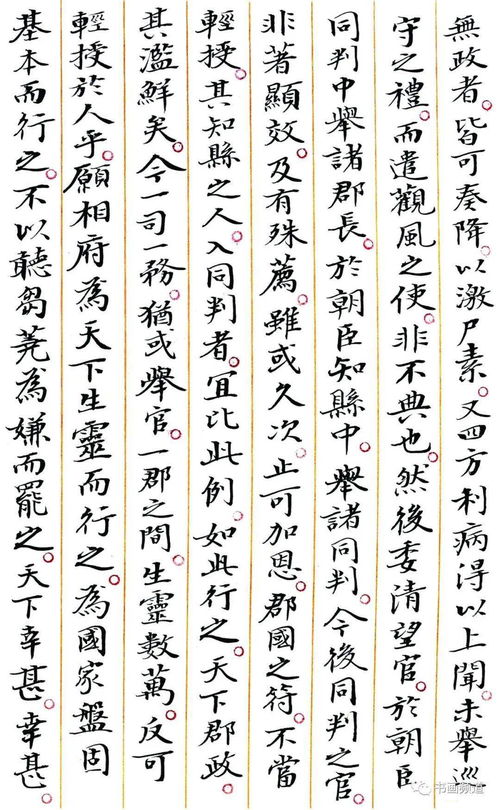 無政者。皆可奏降。以激尸素。又四方利病得以上聞。未舉巡
守之禮。而遣觀風之使。非不典也。然後委清望官。於朝臣
同判中舉諸郡長。於朝臣知縣中。舉諸同判。今後同判之官
非著顯效。及有殊薦。雖或久次。止可加恩。郡國之符。不當
輕授。其知縣之人。入同判者。宜比此例。如此行之。天下郡政
其濫鮮矣。今一司一務。猶或舉官。一郡之間。生靈數萬。反可
輕授於人乎。願相府為天下生靈而行之。為國家盤固
基本而行之。不以聽芻蕘為嫌而罷之。天下幸甚。幸甚。
书画频道